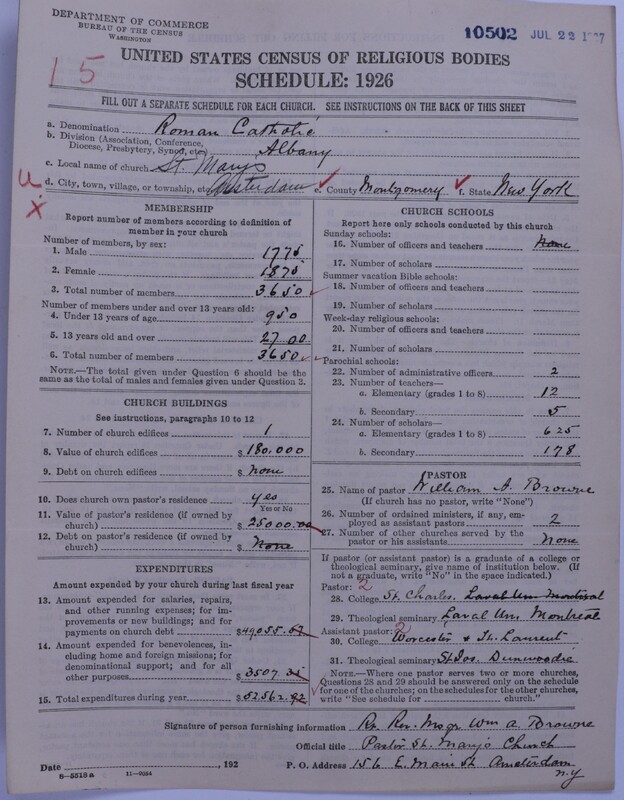 DEPARTMENT OF COMMERCE
BUREAU OF THE CENSUS
WASHINGTON
10502 JUL 22 1927
15
UNITED STATES CENSUS OF RELIGIOUS BODIES
SCHEDULE: 1926
FILL OUT A SEPARATE SCHEDULE FOR EACH CHURCH. SEE INSTRUCTIONS ON THE BACK OF THIS SHEET
a. Denomination Roman Catholic
b. Division (Association, Conference, Diocese, Presbytery, Synod, etc.) Albany
c. Local name of church St. Mary's
d. City, town, village, or township, etc. Amsterdam e. County Montgomery f. State New York
MEMBERSHIP
Report number of members according to definition of
member in your church
Number of members, by sex:
1. Male 1775
2. Female 1875
3. Total number of members 3650
Number of members under and over 13 years old:
4. Under 13 years of age 950
5. 13 years old and over 2700
6. Total number of members 3650
NOTE.—The total given under Question 6 should be the
same as the total of males and females given under Question 3.
CHURCH BUILDINGS
See instructions, paragraphs 10 to 12
7. Number of church edifices 1
8. Value of church edifices $ 180,000
9. Debt on church edifices $ None
10. Does church own pastor's residence yes
Yes or No
11. Value of pastor's residence (if owned by
church) $ 25000.00
12. Debt on pastor's residence (if owned by
church) $ None
EXPENDITURES
Amount expended by your church during last fiscal year
13. Amount expended for salaries, repairs,
and other running expenses; for im-
provements or new buildings; and for
payments on church debt $
14. Amount expended for benevolences,
including home and foreign missions; for
denominational support; and for all
other purposes $ 3507
15. Total expenditures during year $ 52562.92
CHURCH SCHOOLS
Report here only schools conducted by this church
Sunday schools:
16. Number of officers and teachers None
17. Number of scholars
Summer vacation Bible schools:
18. Number of officers and teachers
19. Number of scholars
Week-day religious schools:
20. Number of officers and teachers
21. Number of scholars
Parochial schools:
22. Number of administrative officers 2
23. Number of teachers—
a. Elementary (grades 1 to 8) 12
b. Secondary 5
24. Number of scholars—
a. Elementary (grades 1 to 8) 625
b. Secondary 178
PASTOR
25. Name of pastor William A. Browne
(If church has no pastor, write "None")
26. Number of ordained ministers, if any, em-
ployed as assistant pastors 2
27. Number of other churches served by the
pastor or his assistants None
If pastor (or assistant pastor) is a graduate of a college or
theological seminary, give name of institution below. (If
not a graduate, write "No" in the space indicated.)
Pastor: 2
28. College St. Charles. Laval Un. Montreal
29. Theological seminary Laval Un. Montreal
Assistant pastor: 2
30. College Worcester & St. Laurent
31. Theological seminary St. Jos. Dunwoodie
NOTE.—Where one pastor serves two or more churches,
Questions 28 and 29 should be answered only on the schedule
for one of the churches; on the schedules for the other churches,
write "See schedule for church."
Signature of person furnishing information Rt. Rev. Msgr Wm A. Browne
Official title Pastor St. Mary's Church
Date , 192 P. O. Address 156 E. Main St Amsterdam
N.Y
8—5518a 11—9054